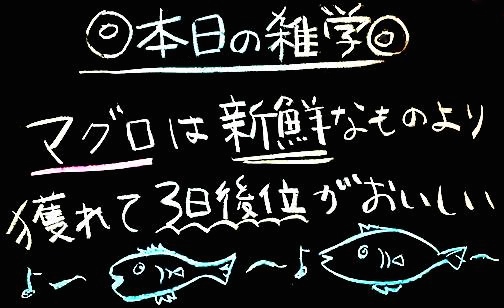 ◎本日の雑学◎
マグロは新鮮なものより
獲れて3日後位がおいしい